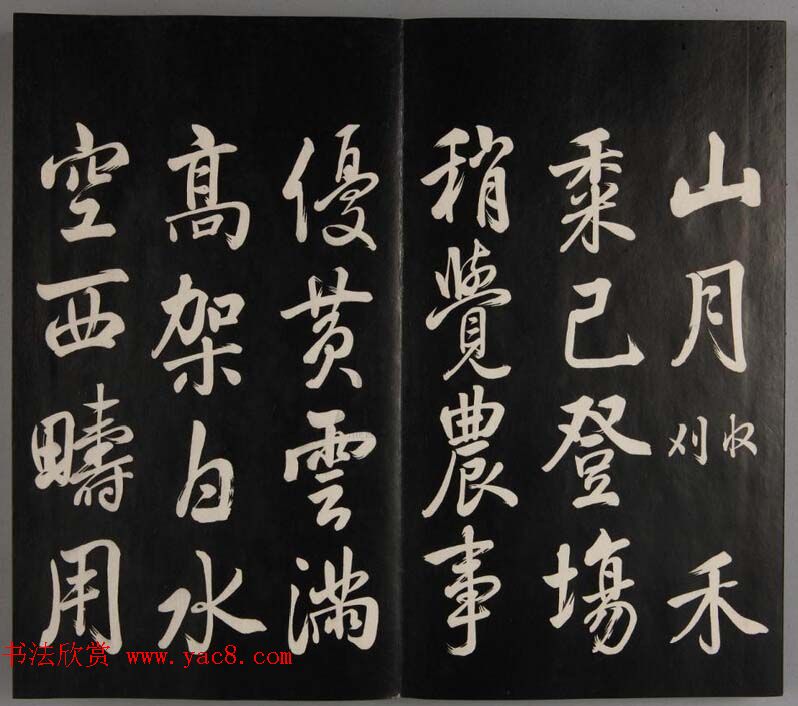 山月收刈禾
黍已登場
稍覺農事
優黃雲滿
高架白水
空西疇用
书法欣赏 www.yac8.com